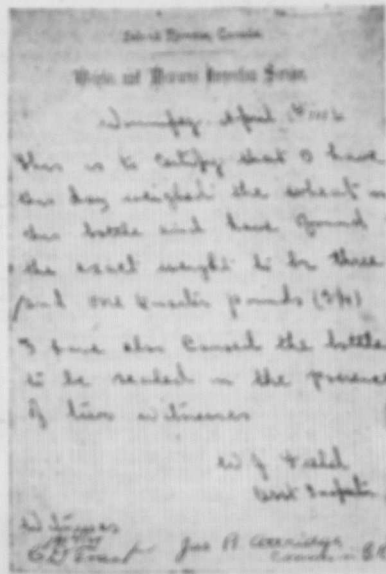 Weights and Measures Inspection Service
Winnipeg April
This is to certify that I have
this day weighed the wheat in
this bottle and have found
the exact weight to be three
and one quarter pounds (3¼)
I have also caused the bottle
to be sealed in the presence
of two witnesses
W J
Asst Inspector
Witnesses
Jas A